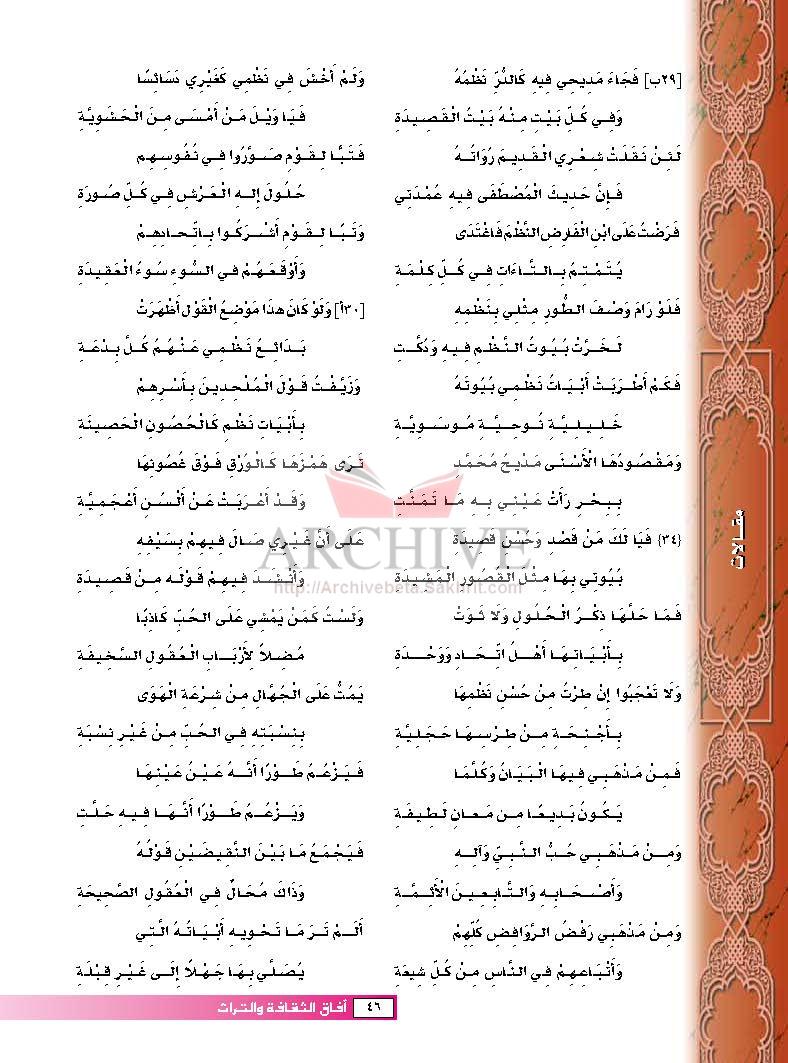 [٢٩ب] فَجَاءَ مَدِيحِي فِيهِ كَالدُّرِّ نَظْمُهُ
وَفِي كُلِّ بَيْتٍ مِنْهُ بَيْتُ الْقَصِيدَةِ
لَئِنْ نَقَلَتْ شِعْرِي الْقَدِيمَ رُوَاتُهُ
فَإِنَّ حَدِيثَ الْمُصْطَفَى فِيهِ عُمْدَتِي
فَرَضْتُ عَلَى ابْنِ الْفَارِضِ النَّظْمَ فَاغْتَدَى
يُتَمْتِمُ بِالتَّاءَاتِ فِي كُلِّ كِلْمَةِ
فَلَوْ رَامَ وَصْفَ الطُّورِ مِثْلِي بِنَظْمِهِ
لَخَرَّتْ بُيُوتُ النَّظْمِ فِيهِ وَدُكَّتِ
فَكَمْ أَطْرَبَتْ أَبْيَاتُ نَظْمِي بُيُوتَهُ
خَلِيلِيَّةٍ نُوحِيَّةٍ مُوسَوِيَّةِ
وَمَقْصُودُهَا الْأَسْنَى مَدْيِحُ مُحَمَّدٍ
بِبِحْرٍ رَأَتْ عَيْنِي بِهِ مَا تَمَنَّتِ
{٣٤} فَيَا لَكَ مَنْ قَصْدٍ وَحُسْنِ قَصِيدَةٍ
بُيُوتِي بِهَا مِثْلُ الْقُصُورِ الْمَشِيدَةِ
فَمَا حَلَّهَا ذِكْرُ الْحُلُولِ وَلَا ثَوَتْ
بِأَبْيَاتِهَا أَهْلُ اتِّحَادٍ وَوَحْدَةِ
وَلَا تَعْجَبُوا إِنْ طِرْتُ مِنْ حُسْنِ نَظْمِهَا
بِأَجْنِحَةٍ مِنْ طِرْسِهَا حَجَلِيَّةِ
فَمِنْ مَذْهَبِي فِيهَا الْبَيَانُ وَكُلَّمَا
يَكُونُ بَدِيعًا مِن مَعَانٍ لَطِيفَةِ
وَمِنْ مَذْهَبِي حُبُّ النَّبِيِّ وَآلِهِ
وَأَصْحَابِهِ وَالتَّابِعِينَ الْأَئِمَّةِ
وَمِنْ مَذْهَبِي رَفْضُ الرَّوَافِضِ كُلِّهِمْ
وَأَتْبَاعِهِمْ فِي النَّاسِ مِنْ كُلِّ شِيعَةِ
وَلَمْ أَخْشَ فِي نَظْمِي كَغَيْرِي دَسَائِسًا
فَيَا وَيْلَ مَنْ أَمْسَى مِنَ الْحَشَوِيَّةِ
فَتَبًّا لِقَوْمٍ صَوَّرُوا فِي نُفُوسِهِم
حُلُولَ إِلهِ الْعَرْشِ فِي كُلِّ صُورَةِ
وَتَبًّا لِقَوْمٍ أَشْرَكُوا بِاتِّحَادِهِمْ
وَأَوْقَعَهُمْ فِي السُّوءِ سُوءُ الْعَقِيدَةِ
[٣٠أ] وَلَوْ كَانَ هذَا مَوْضِعُ الْقَوْلِ أَظْهَرَتْ
بَدَائِعُ نَظْمِي عَنْهُمُ كُلَّ بِدْعَةِ
وَزَيَّفْتُ قَوْلَ الْمُلْحِدِينَ بِأَسْرِهِمْ
بِأَبْيَاتِ نَظْمٍ كَالْحُصُونِ الْحَصِينَةِ
تَرَى هَمْزَهَا كَالْوُرْقِ فَوْقَ غُصُونِهَا
وَقَدْ أَعْرَبَتْ عَنْ أَلْسُنٍ أَعْجَمِيَّةِ
عَلَى أَنَّ غَيْرِي صَالَ فِيهِمْ بِسَيْفِهِ
وَأَنْشَدَ فِيهِمْ قَوْلَهُ مِنْ قَصِيدَةِ
وَلَسْتُ كَمَنْ يَمْشِي عَلَى الْحُبِّ كَاذِبًا
مُضِلاً لِأَرْبَابِ الْعُقُولِ السَّخِيفَةِ
يَمُتُّ عَلَى الْجُهَّالِ مِنْ شِرْعَةِ الْهَوَى
بِنِسْبَتِهِ فِي الْحُبِّ مِنْ غَيْرِ نِسْبَةِ
فَيَزْعُمُ طَوْرًا أَنَّهُ عَيْنُ عَيْنِهَا
وَيَزْعُمُ طَوْرًا أَنَّهَا فِيهِ حَلَّتِ
فَيَجْمَعُ مَا بَيْنَ النَّقِيضَيْنِ قَوْلُهُ
وَذَاكَ مُحَالٌ فِي الْعُقُولِ الصَّحِيحَةِ
أَلَمْ تَرَ مَا تَحْوِيهِ أَبْيَاتُهُ الَّتِي
يُصَلِّي بِهَا جَهْلًا إِلَى غَيْرِ قِبْلَةِ
مقالات
ARCHIVE
http://Archivebeta.Sakhrit.com
٤٦ آفاق الثقافة والتراث